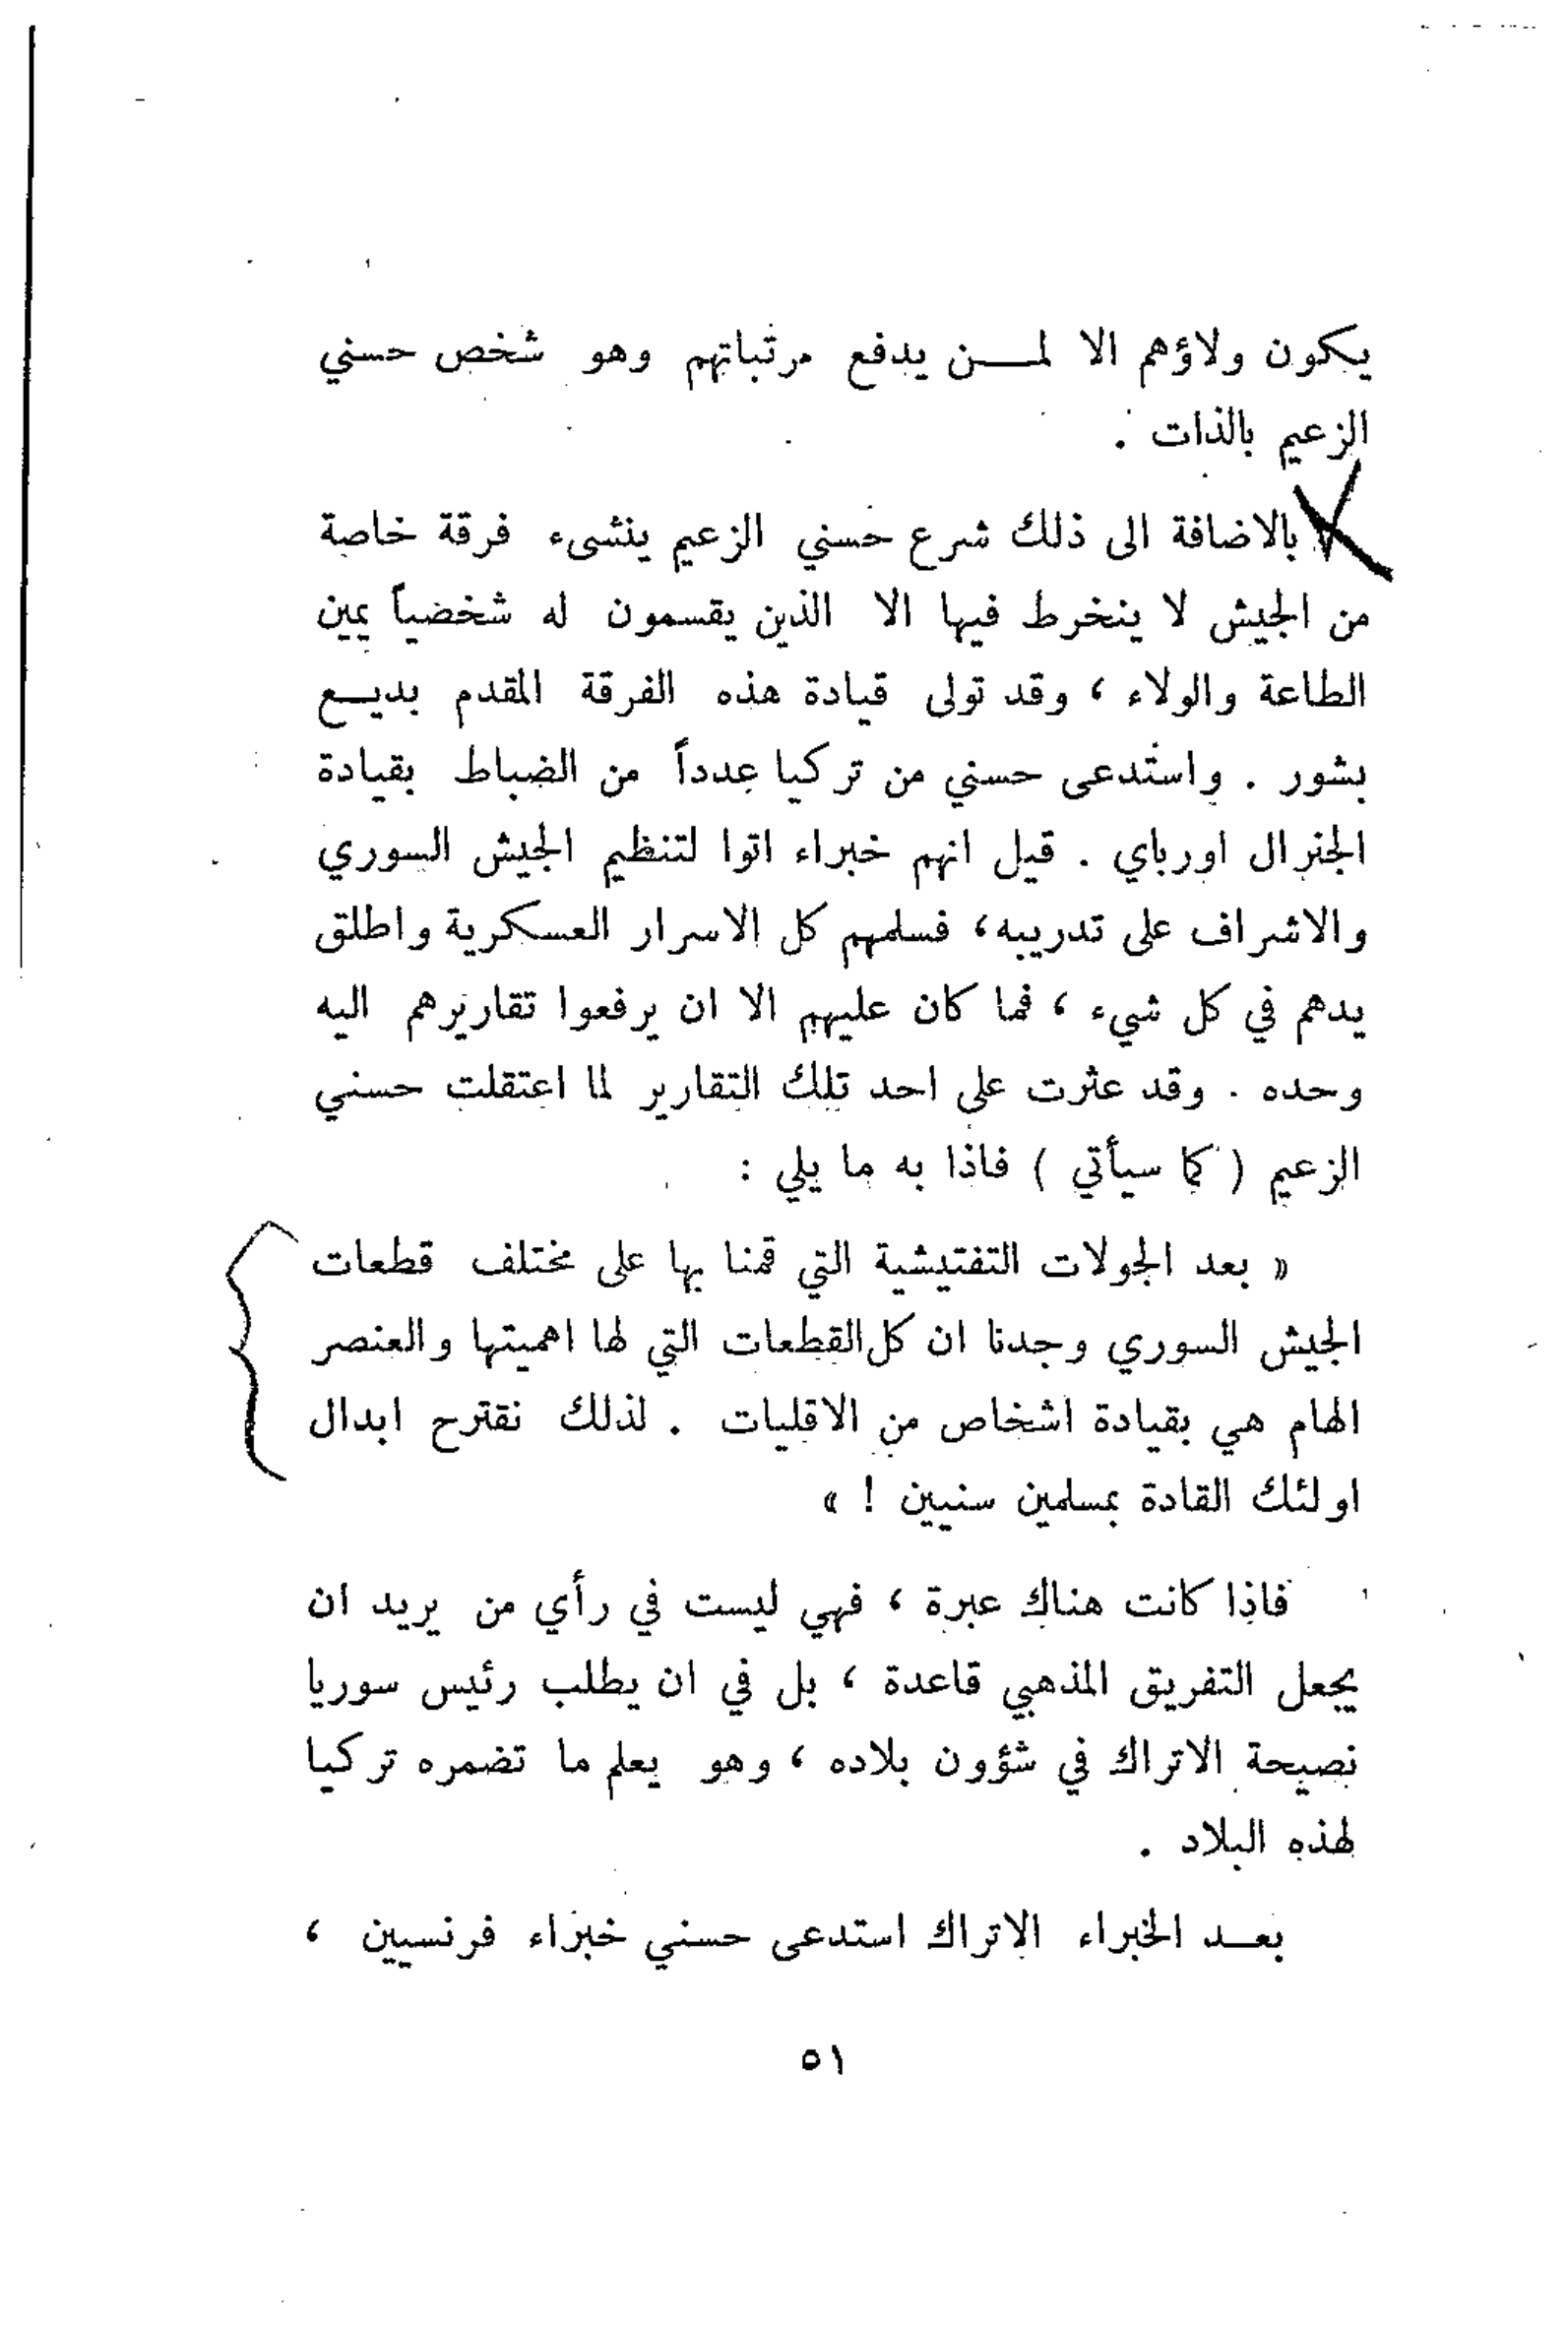 يكون ولاؤهم الا لمـــن يدفع مرتباتهم وهو شخص حسني
الزعيم بالذات .
بالاضافة الى ذلك شرع حسني الزعيم ينشىء فرقة خاصة
من الجيش لا ينخرط فيها الا الذين يقسمون له شخضياً يمين
الطاعة والولاء ، وقد تولى قيادة هذه الفرقة المقدم بديــع
بشور . واستدعى حسني من تركيا عدداً من الضباط بقيادة
الجنرال اورباي . قيل انهم خبراء اتوا لتنظيم الجيش السوري
والاشراف على تدريبه ، فسلمهم كل الاسرار العسكرية واطلق
يدهم في كل شيء ، فما كان عليهم الا ان يرفعوا تقاريرهم اليه
وحده . وقد عثرت على احد تلك التقارير لما اعتقلت حسني
الزعيم ( كما سيأتي ) فاذا به ما يلي :
« بعد الجولات التفتيشية التي قمنا بها على مختلف قطعات
الجيش السوري وجدنا ان كل القطعات التي لها اهميتها والعنصر
الهام هي بقيادة اشخاص من الاقليات . لذلك نقترح ابدال
اولئك القادة بمسلمين سنيين ! »
فاذا كانت هناك عبرة ، فهي ليست في رأي من يريد ان
يجعل التفريق المذهبي قاعدة ، بل في ان يطلب رئيس سوريا
نصيحة الاتراك في شؤون بلاده ، وهو يعلم ما تضمره تركيا
لهذه البلاد .
بعــد الخبراء الاتراك استدعى حسني خبراء فرنسيين ،
٥١